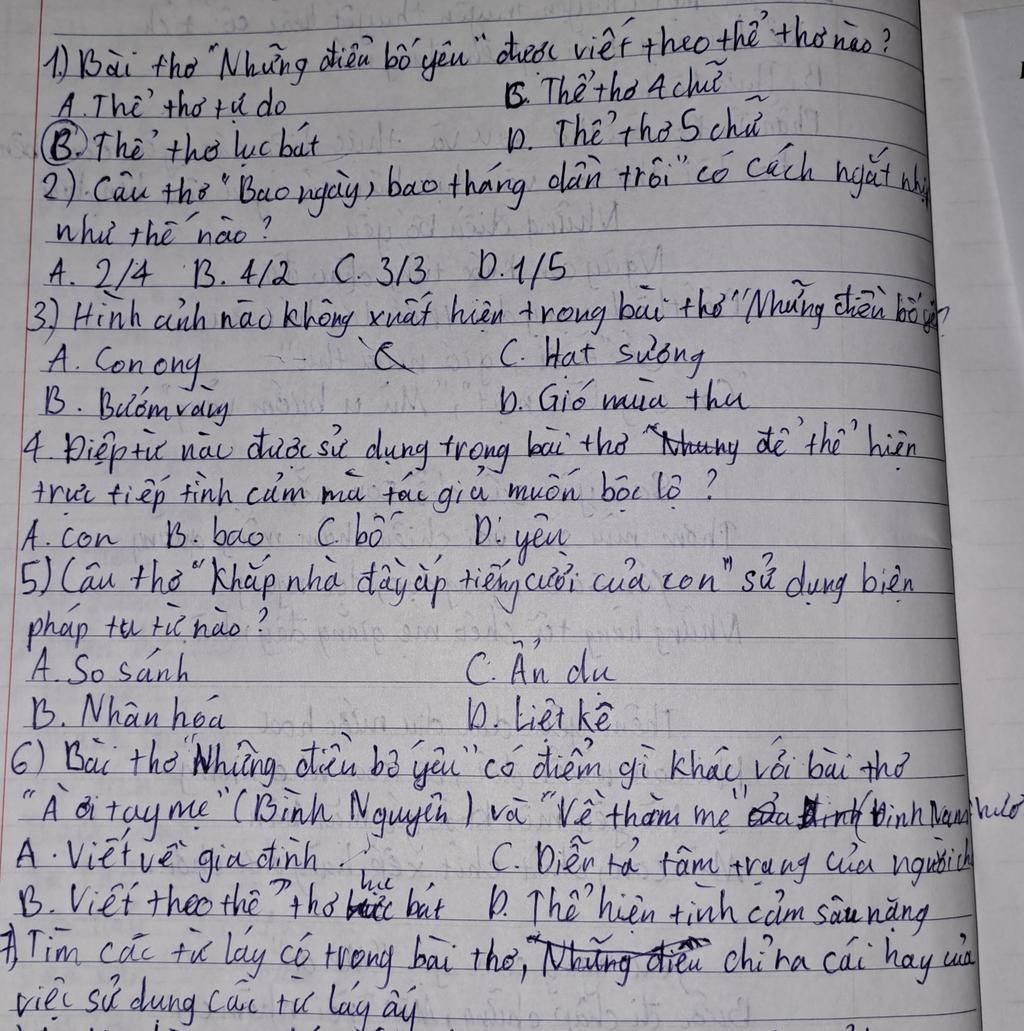 1.) Bài thơ "Những điều bố yêu" được viết theo thể thơ nào?
A. Thể thơ tự do C. Thể thơ 4 chữ
B. Thể thơ lục bát D. Thể thơ 5 chữ
2) Câu thơ "Bao ngày, bao tháng dần trôi" có cách ngắt nhịp
như thế nào?
A. 2/4 B. 4/2 C. 3/3 D. 1/5
3.) Hình ảnh nào không xuất hiện trong bài thơ "Những điều bố yêu?
A. Con ong C. Hạt sương
B. Bướm vàng D. Gió mùa thu
4. Điệp từ nào được sử dụng trong bài thơ "Nhưng để thể hiện
trực tiếp tình cảm mà tác giả muốn bộc lộ?
A. con B. bao C. bố D. yêu
5) Câu thơ "Khắp nhà đầy ắp tiếng cười của con" sử dụng biện
pháp tu từ nào?
A. So sánh C. Ẩn dụ
B. Nhân hóa D. Liệt kê
6) Bài thơ "Những điều bố yêu" có điểm gì khác với bài thơ
"À ơi tay mẹ" (Bình Nguyên) và "Về thăm mẹ" của Đinh (Đinh Nam
A. Viết về gia đình C. Diễn tả tâm trạng của người
B. Viết theo thể thơ lục bát D. Thể hiện tình cảm sâu nặng
7) Tìm các từ láy có trong bài thơ, "Những điều" chỉ ra cái hay của
việc sử dụng các từ láy ấy